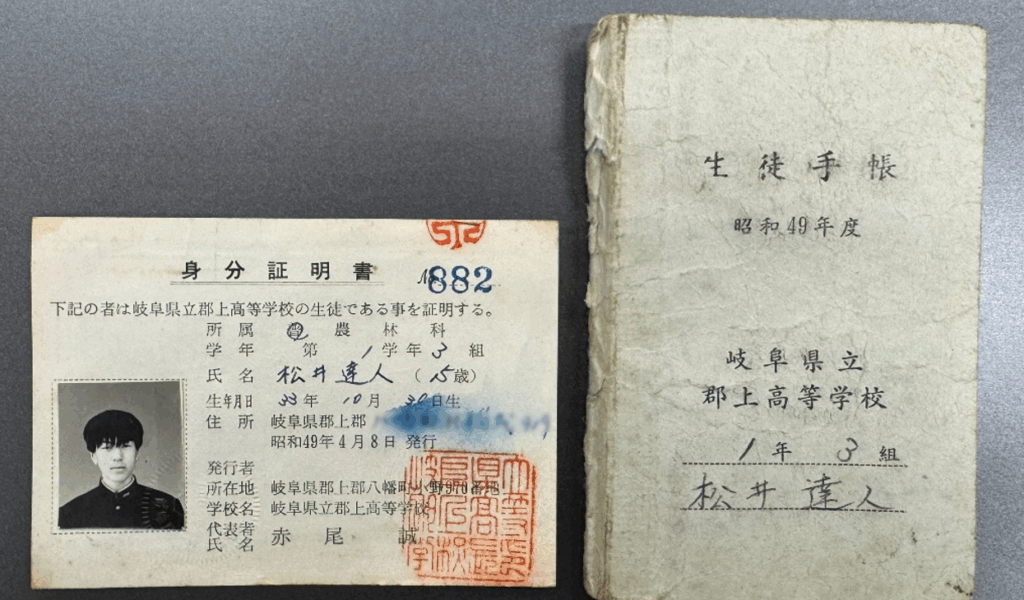 身分証明書
№882
下記の者は岐阜県立郡上高等学校の生徒である事を証明する。
所属 農林科
学年 第1学年3組
氏名 松井達人(15歳)
生年月日 33年10月30日生
住所 岐阜県郡上郡
昭和49年4月8日 発行
発行者
所在地 岐阜県郡上郡八幡町小野970番地
学校名 岐阜県立郡上高等学校
代表者氏名 赤尾誠
生徒手帳
昭和49年度
岐阜県立
郡上高等学校
1年3組
松井達人